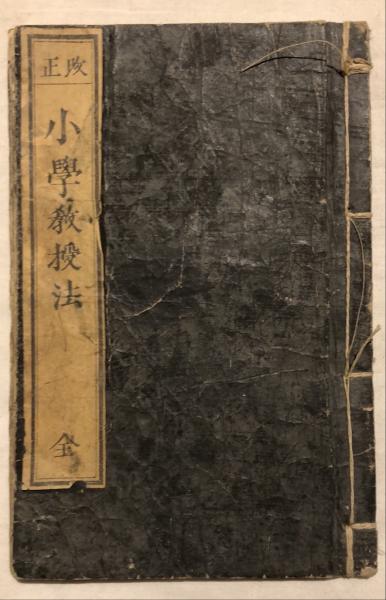 改正
小學教授法
全